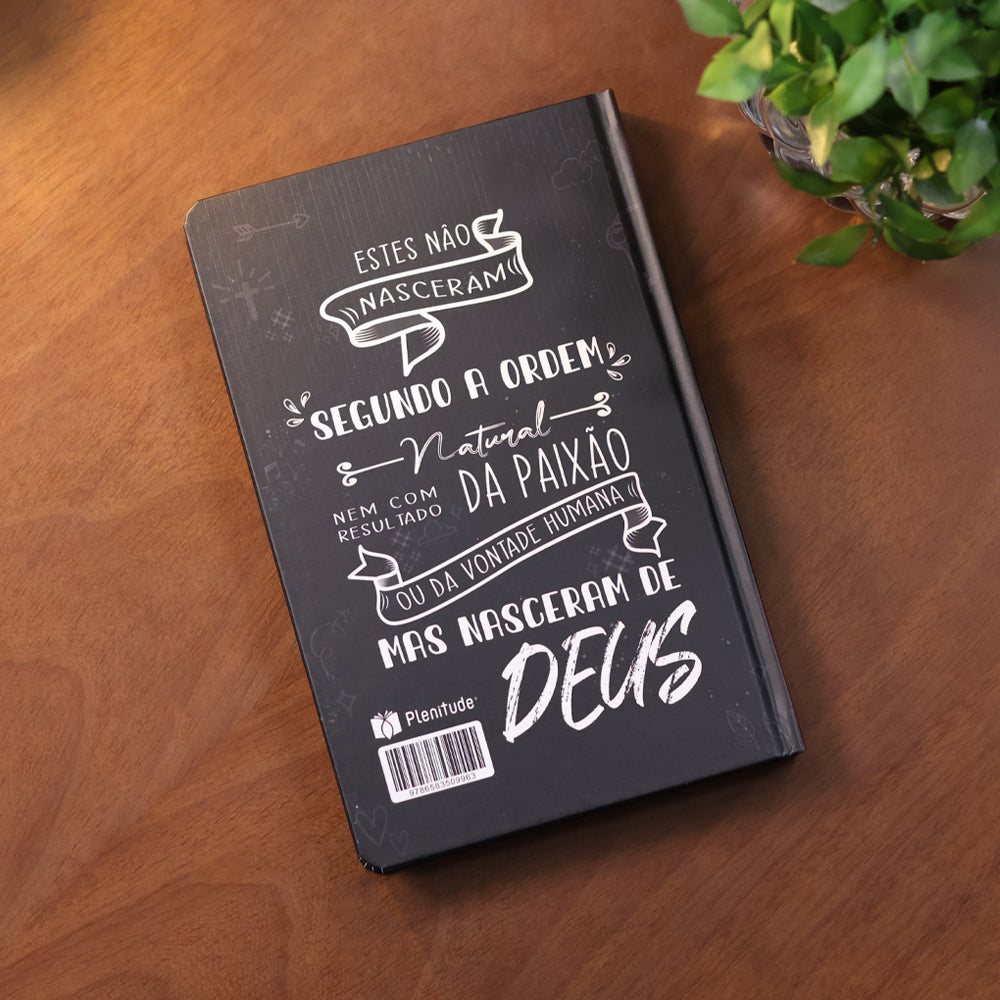 ESTES NÃO
NASCERAM
SEGUNDO A ORDEM
Natural
NEM COM
RESULTADO
DA PAIXÃO
OU DA VONTADE HUMANA
MAS NASCERAM DE
DEUS
Plenitude
9786583509963